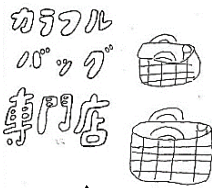 カラフル
バッグ
専門店